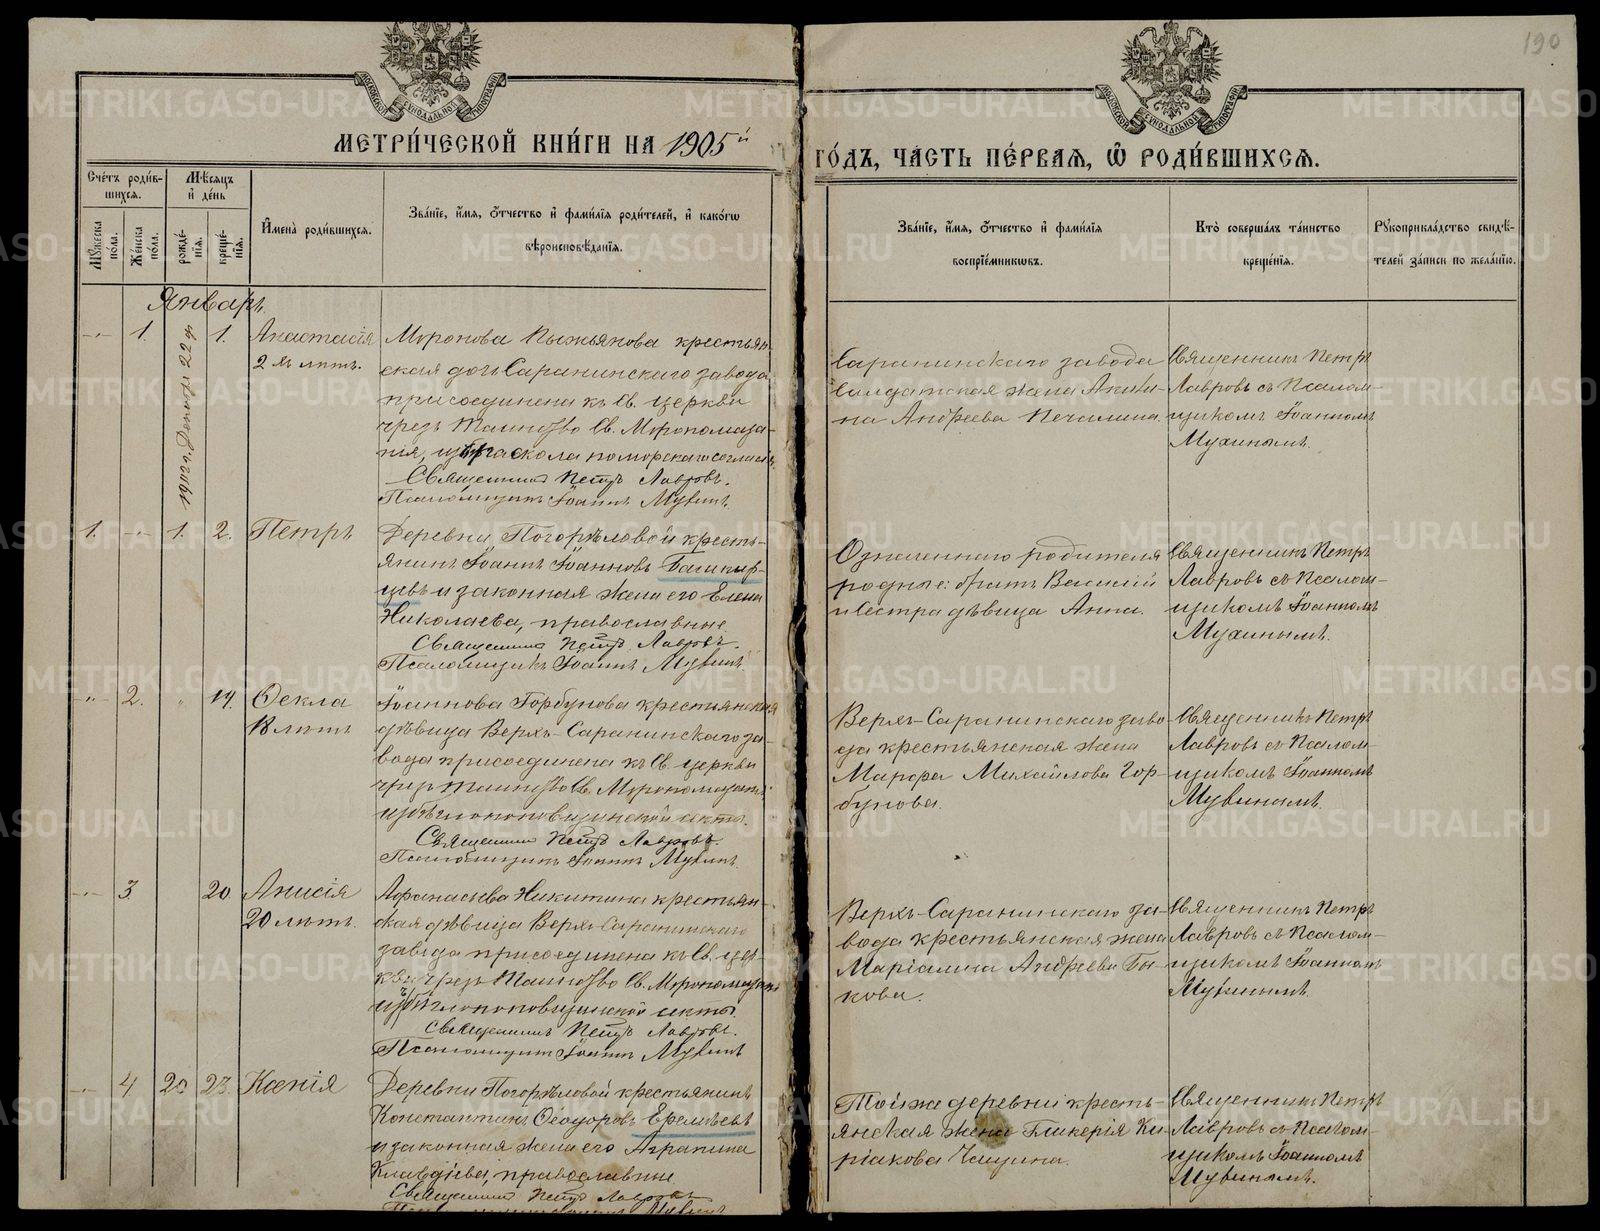 190
МОСКОВСКОЙ СУНОДАЛЬНОЙ ТИПОГРАФІИ
МОСКОВСКОЙ СУНОДАЛЬНОЙ ТИПОГРАФІИ
МЕТРИ́ЧЕСКОЙ КНИ́ГИ НА 1905й
ГО́ДЪ, ЧА́СТЬ ПЕ́РВАѦ, Ѽ РОДИ́ВШИХСѦ.
Сче́тъ роди́в-
шихсѧ.
Мѣ́сѧцъ
и҆ де́нь
Мꙋ́жеска
по́ла.
Же́нска
по́ла.
рожде́-
нїѧ.
креще́-
нїѧ.
И҆мена̀ роди́вшихсѧ.
Зва́нїе, и҆́мѧ, ѻ҆́тчество и҆ фами́лїѧ роди́телей, и҆ како́гѡ
вѣроисповѣ́данїѧ.
Зва́нїе, и҆́мѧ, ѻ҆́тчество и҆ фами́лїѧ
воспрїе́мникѡвъ.
Кто̀ соверша́лъ та́инство
креще́нїѧ.
Рꙋкоприкла́дство свидѣ́-
телей за́писи по жела́нїю.
Январь.
1.
1.
Анастасія
2
лѣтъ.
Миронова Пыжьянова крестьян-
ская дочь Саранинскаго завода
присоединена къ Св. церкви
чрезъ Таинство Св. Мѵропомаза-
нія, изъ раскола поморскаго согласія.
Священникъ Петръ Лавровъ.
Псаломщикъ Іоаннъ Мухинъ.
Саранинскаго завода
солдатская жена Акили-
на Андреева Печалина.
Священникъ Петръ
Лавровъ съ Псалом-
щикомъ Іоанномъ
Мухинымъ.
1.
1.
2.
Петръ
Деревни Погорѣловой кресть-
янинъ Іоаннъ Іоанновъ Башкир-
цевъ и законная жена его Елена
Николаева, православные
Священникъ Петръ Лавровъ.
Псаломщикъ Іоаннъ Мухинъ.
Означеннаго родителя
родные: братъ Василій
и сестра дѣвица Анна.
Священникъ Петръ
Лавровъ съ Псалом-
щикомъ Іоанномъ
Мухинымъ.
2.
14.
Ѳекла
18 лѣтъ
Іоаннова Горбунова крестьянская
дѣвица Верхъ-Саранинскаго за-
вода присоединена къ Св. церкви
чрезъ Таинство Св. Мѵропомазанія
изъ бѣглопоповщинской секты.
Священникъ Петръ Лавровъ.
Псаломщикъ Іоаннъ Мухинъ.
Верхъ-Саранинскаго заво-
да крестьянская жена
Марѳа Михайлова Гор-
бунова.
Священникъ Петръ
Лавровъ съ Псалом-
щикомъ Іоанномъ
Мухинымъ.
3.
20
Анисія
20 лѣтъ.
Аѳанасьева Никитина крестьян-
ская дѣвица Верхъ-Саранинскаго
завода присоединена къ Св. цер-
кви чрезъ Таинство Св. Мѵропомазанія
изъ бѣглопоповщинской секты.
Священникъ Петръ Лавровъ.
Псаломщикъ Іоаннъ Мухинъ
Верхъ-Саранинскаго за-
вода крестьянская жена
Андреева Бы-
кова.
Священникъ Петръ
Лавровъ съ Псалом-
щикомъ Іоанномъ
Мухинымъ.
4.
20
23.
Ксенія
Деревни Погорѣловой крестьянинъ
Константинъ Ѳеодоровъ Еремѣевъ
и законная жена его Агрипина
Клавдіева, православные
Священникъ Петръ Лавровъ
Той же деревни кресть-
янская жена Гликерія Ки-
ріакова Чащина.
Священникъ Петръ
Лавровъ съ Псалом-
щикомъ Іоанномъ
Мухинымъ.
METRIKI.GASO-URAL.RU